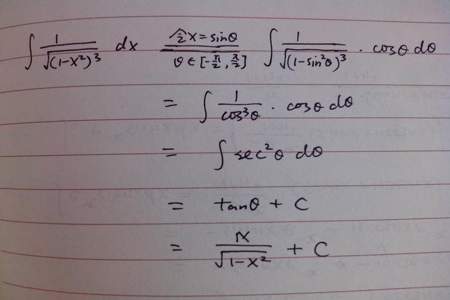 ∫ 1/√(1-x²)³ dx 令x=sinθ θ∈[-π/2, π/2] ∫ 1/√(1-sin²θ)³ · cosθ dθ
= ∫ 1/cos³θ · cosθ dθ
= ∫ sec²θ dθ
= tanθ + C
= x/√1-x² + C